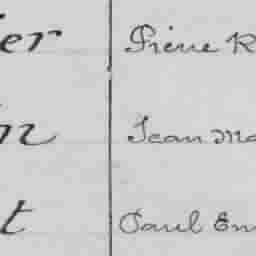 er Pierre R
n Jean Ma
t Paul Em